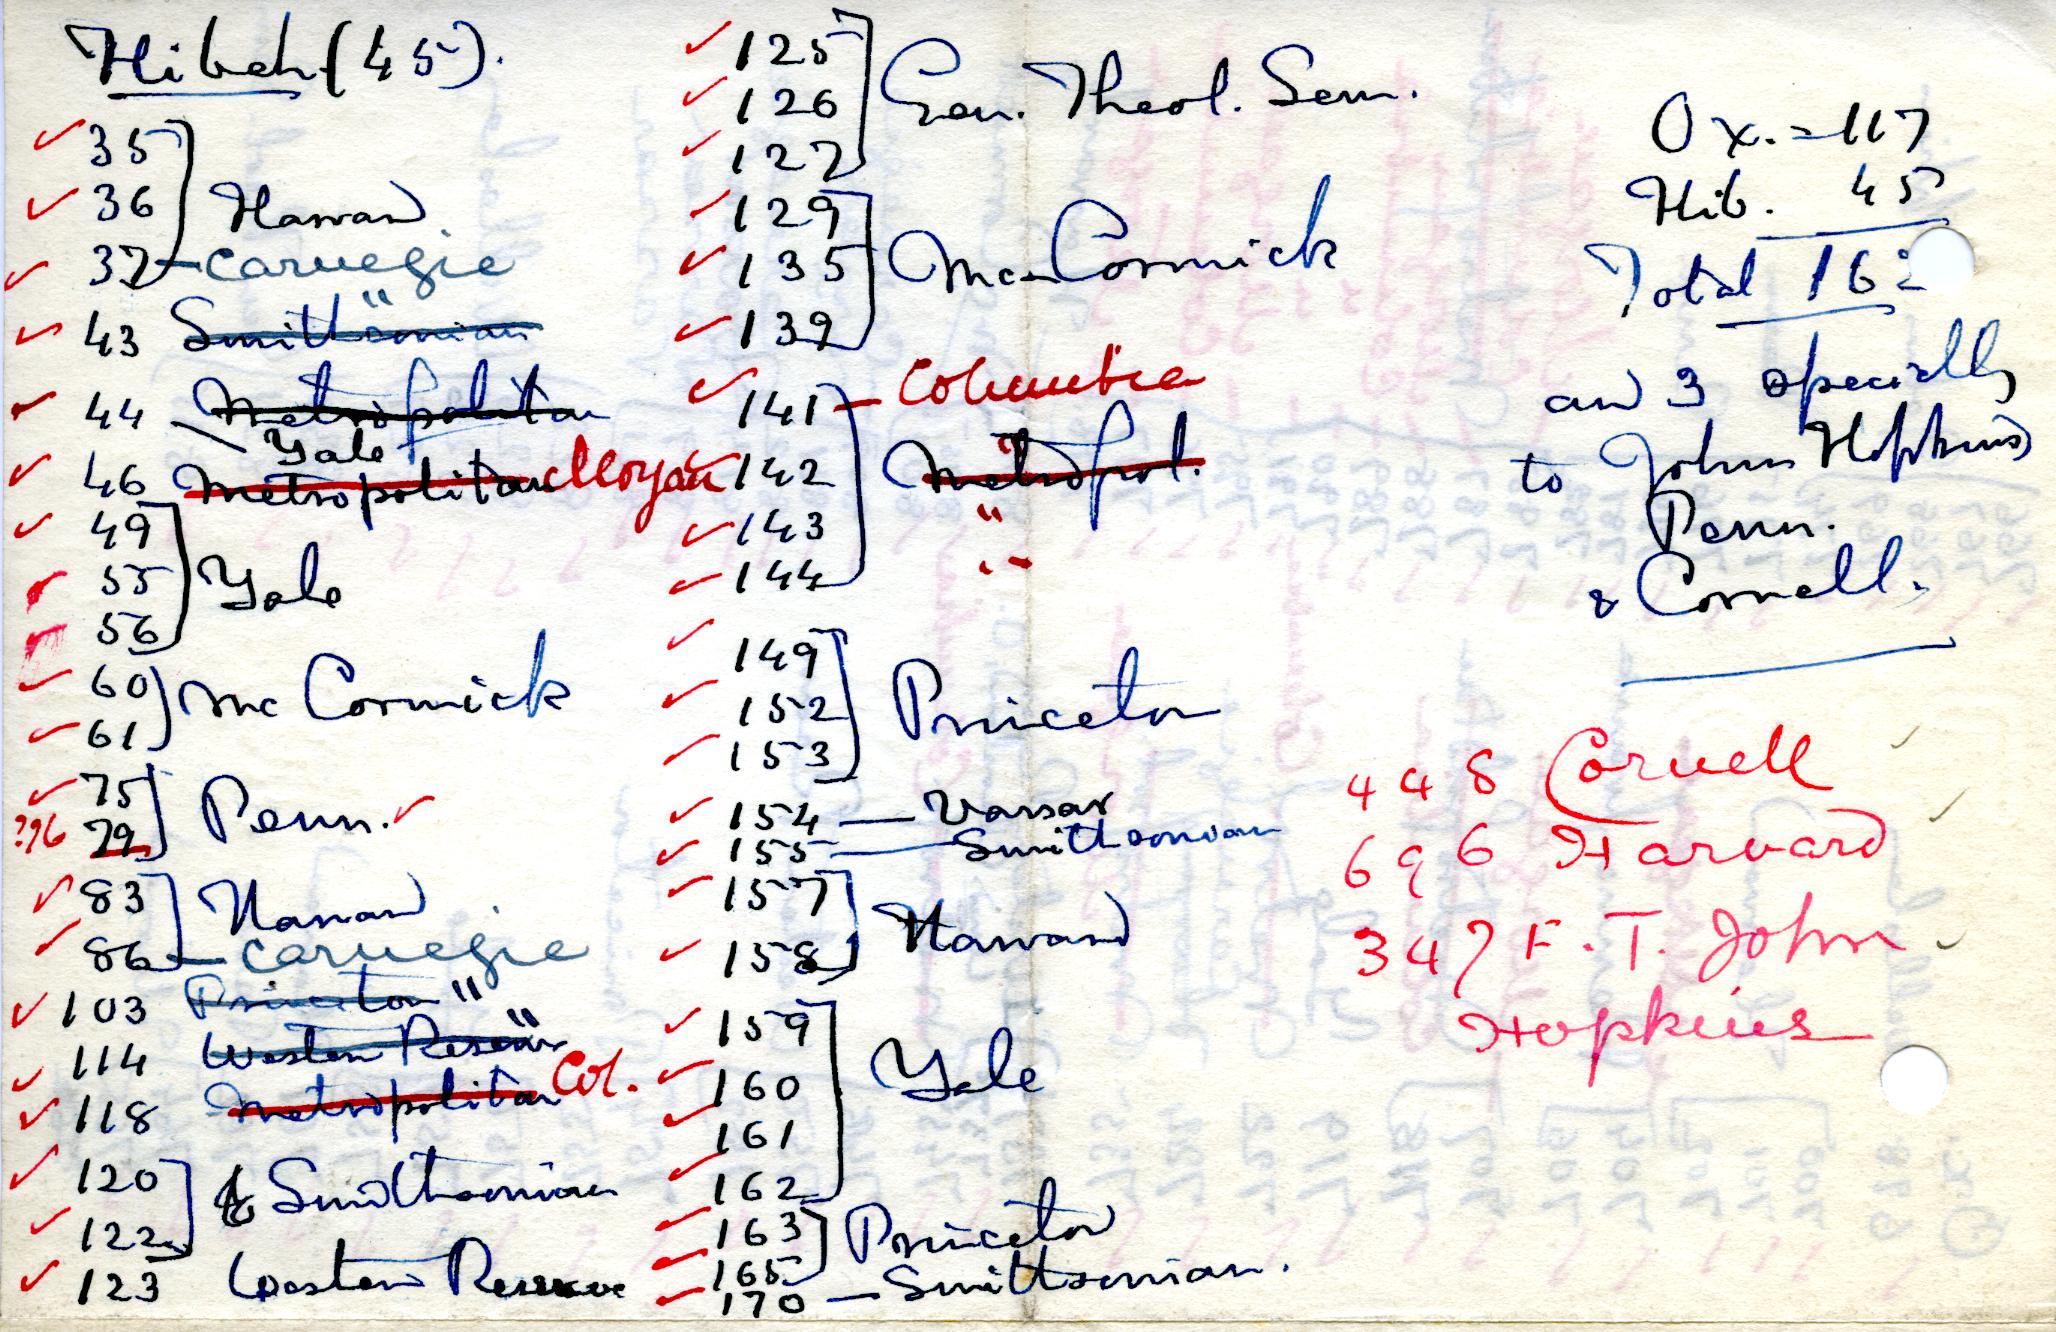 Hibeh (45).
35
36 Harvard
37 - Carnegie
43 Smithsonian "
44 Metropolitan
Yale
46 Metropolitan Morgan
49
55 Yale
56
60 Mc Cormick
61
75 Penn.
?96 79
83 Harvard
86 - Carnegie
103 Princeton "
114 Western Reserve "
118 Metropolitan Col.
120 Smithsonian
122
123 Western Reserve
125
126 Gen. Theol. Sem.
127
129
135 McCormick
139
141 - Columbia
142 Metropol. "
143 "
144 "
149
152 Princeton
153
154 - Vassar
155 - Smithsonian
157
158 Harvard
159
160 Yale
161
162
163 Princeton
165
170 - Smithsonian.
Ox. = 117
Hib. 45
Total 162
and 3 specially
to Johns Hopkins
Penn.
& Cornell.
448 Cornell
696 Harvard
347 F. T. John
Hopkins